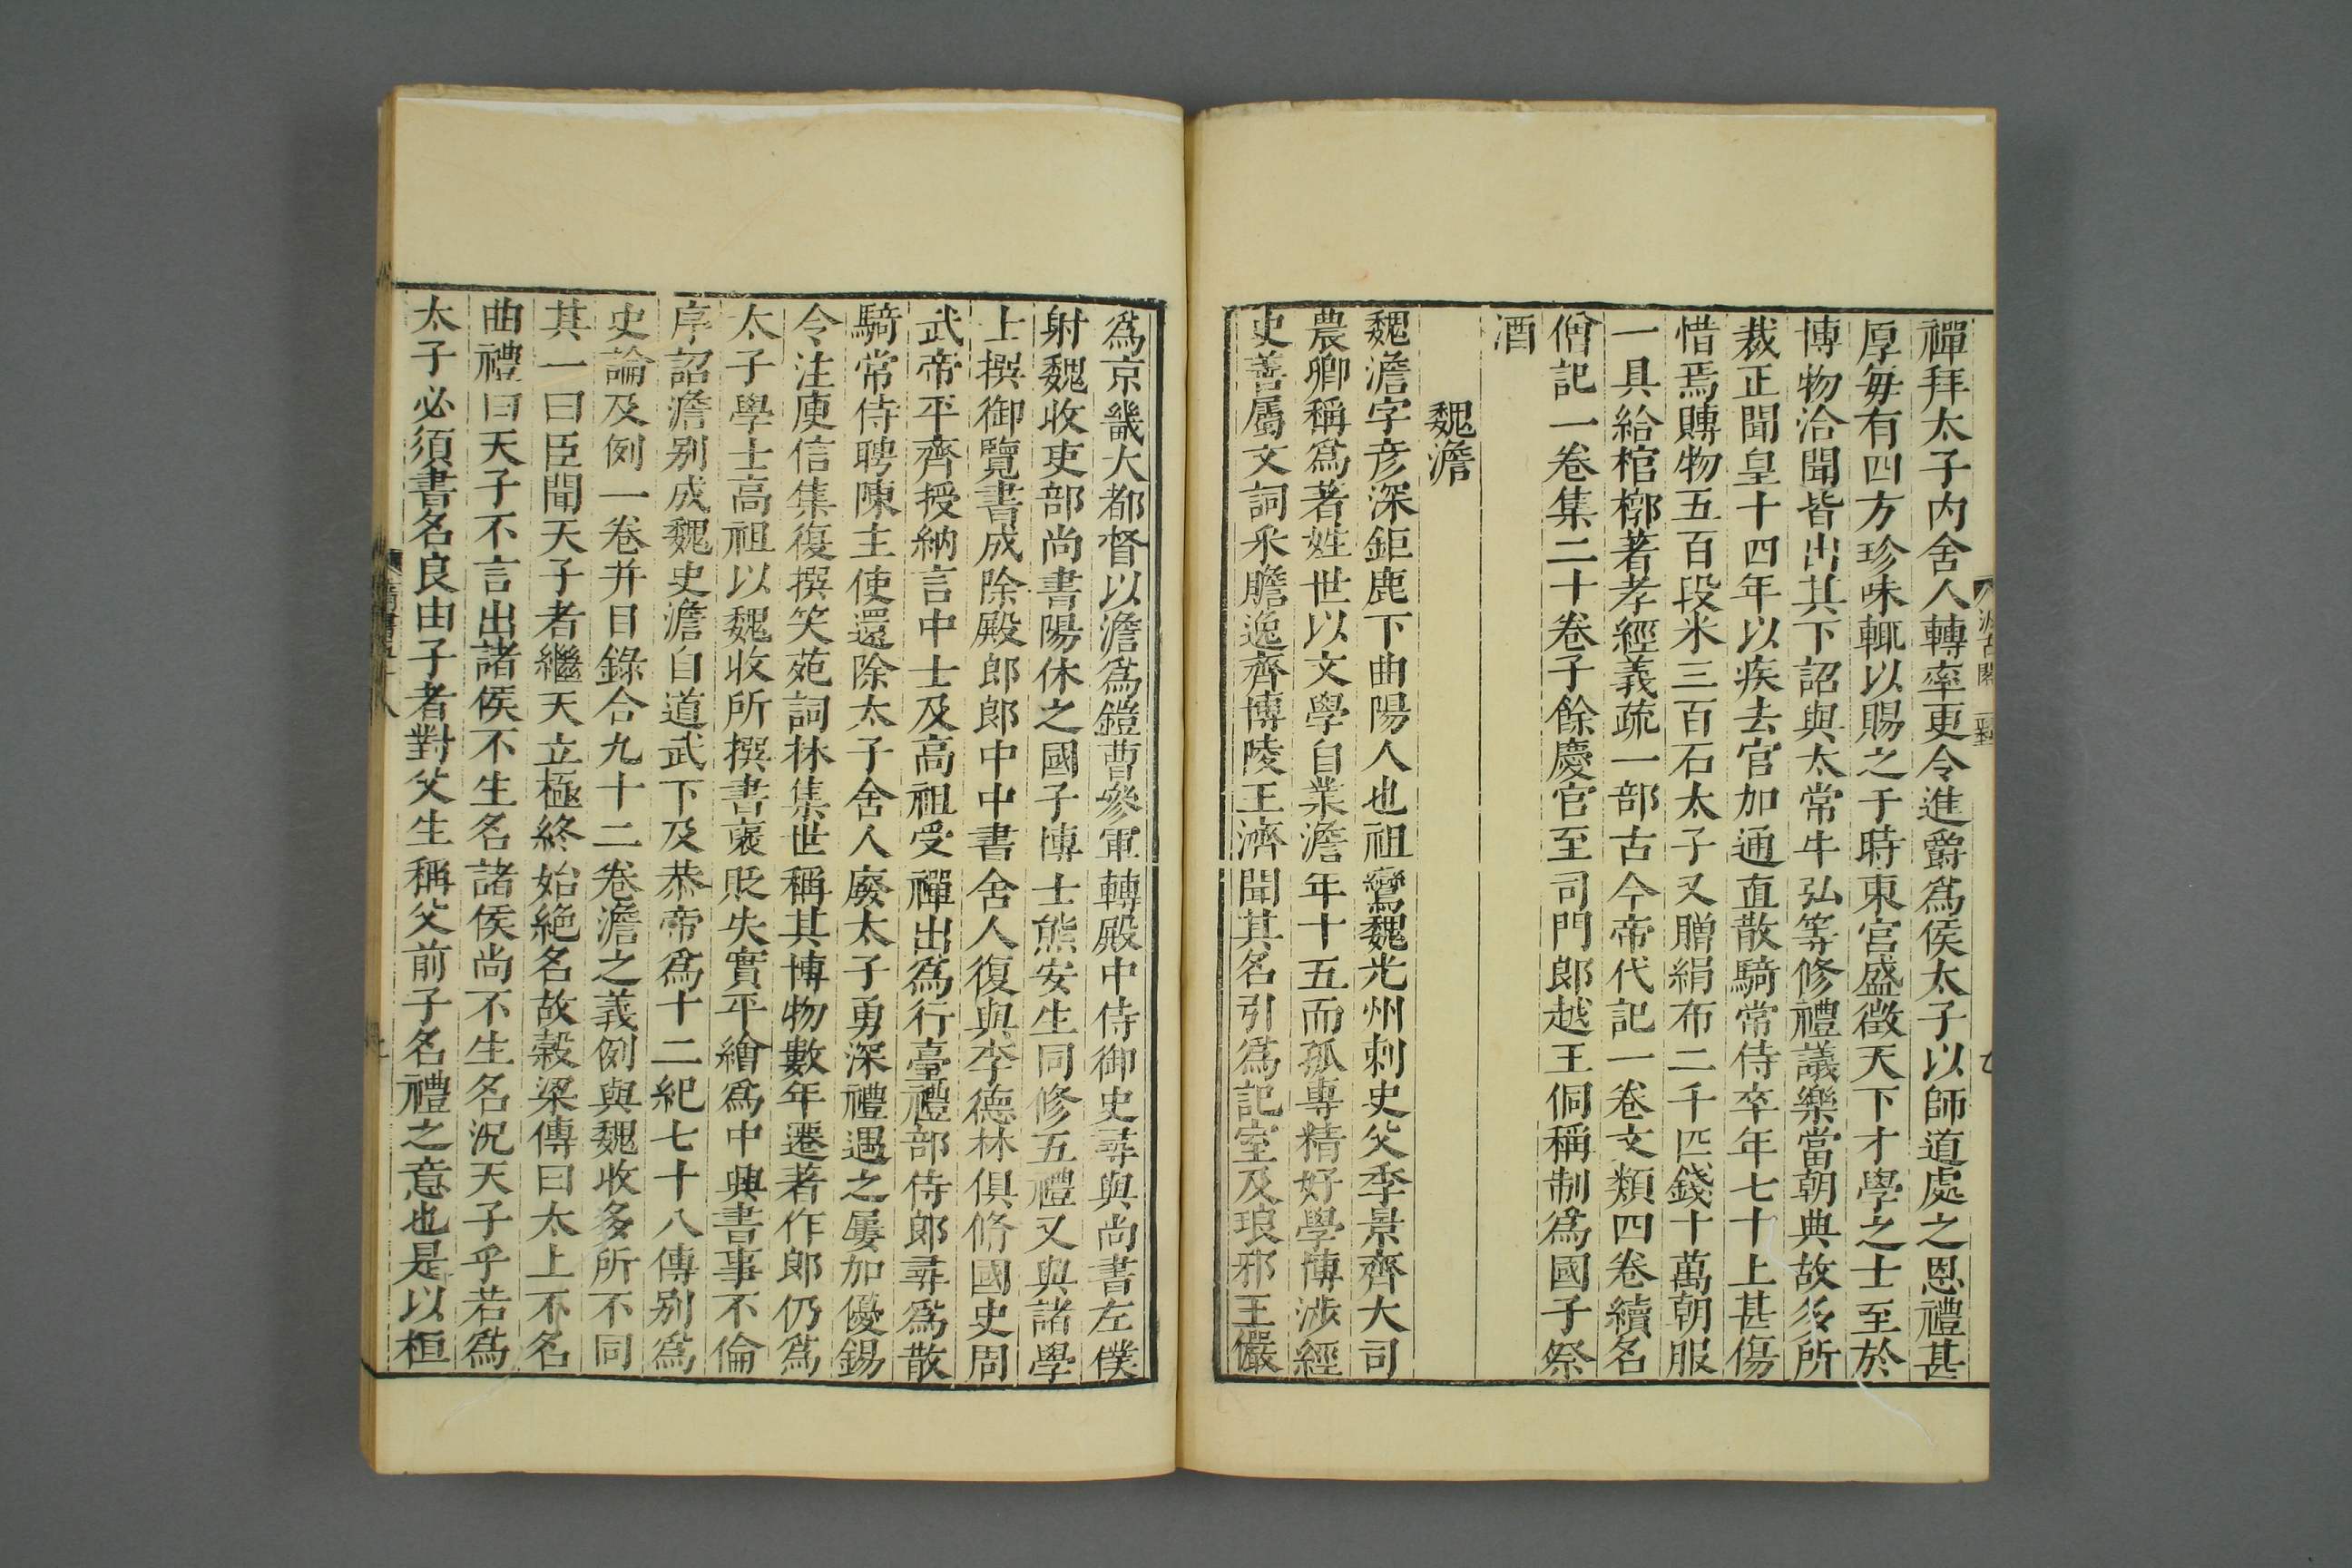 禪拜太子内舍人轉率更令進爵爲侯太子以師道處之恩禮甚
厚毎有四方珍味輒以賜之于時東宮盛徵天下才學之士至於
博物洽聞皆出其下詔與太常牛弘等修禮議樂當朝典故多所
裁正開皇十四年以疾去官加通直散騎常侍卒年七十上甚傷
惜焉賻物五百段米三百石太子又贈絹布二千匹錢十萬朝服
一具給棺槨著孝經義疏一部古今帝代記一卷文類四卷續名
僧記一卷集二十卷子餘慶官至司門郎越王侗稱制爲國子祭
酒
魏澹
魏澹字彦深鉅鹿下曲陽人也祖鸞魏光州刺史父季景齊大司
農卿稱爲著姓世以文學自業澹年十五而孤專精好學博涉經
史善屬文詞采贍逸齊博陵王濟聞其名引爲記室及琅邪王儼
爲京畿大都督以澹爲鎧曹參軍轉殿中侍御史尋與尚書左僕
射魏收吏部尚書陽休之國子博士熊安生同修五禮又與諸學
士撰御覽書成除殿郎郎中中書舍人復與李德林俱脩國史周
武帝平齊授納言中士及高祖受禪出爲行臺禮部侍郎尋爲散
騎常侍聘陳主使還除太子舍人廢太子勇深禮遇之屢加優錫
令注庾信集復撰笑苑詞林集世稱其博物數年遷著作郎仍爲
太子學士高祖以魏收所撰書褒貶失實平繪爲中興書事不倫
序詔澹别成魏史澹自道武下及恭帝爲十二紀七十八傳别爲
史論及例一卷并目錄合九十二卷澹之義例與魏收多所不同
其一曰臣聞天子者繼天立極終始絶名故穀梁傳曰太上不名
曲禮曰天子不言出諸侯不生名諸侯尚不生名况天子乎若爲
太子必須書名良由子者對父生稱父前子名禮之意也是以桓